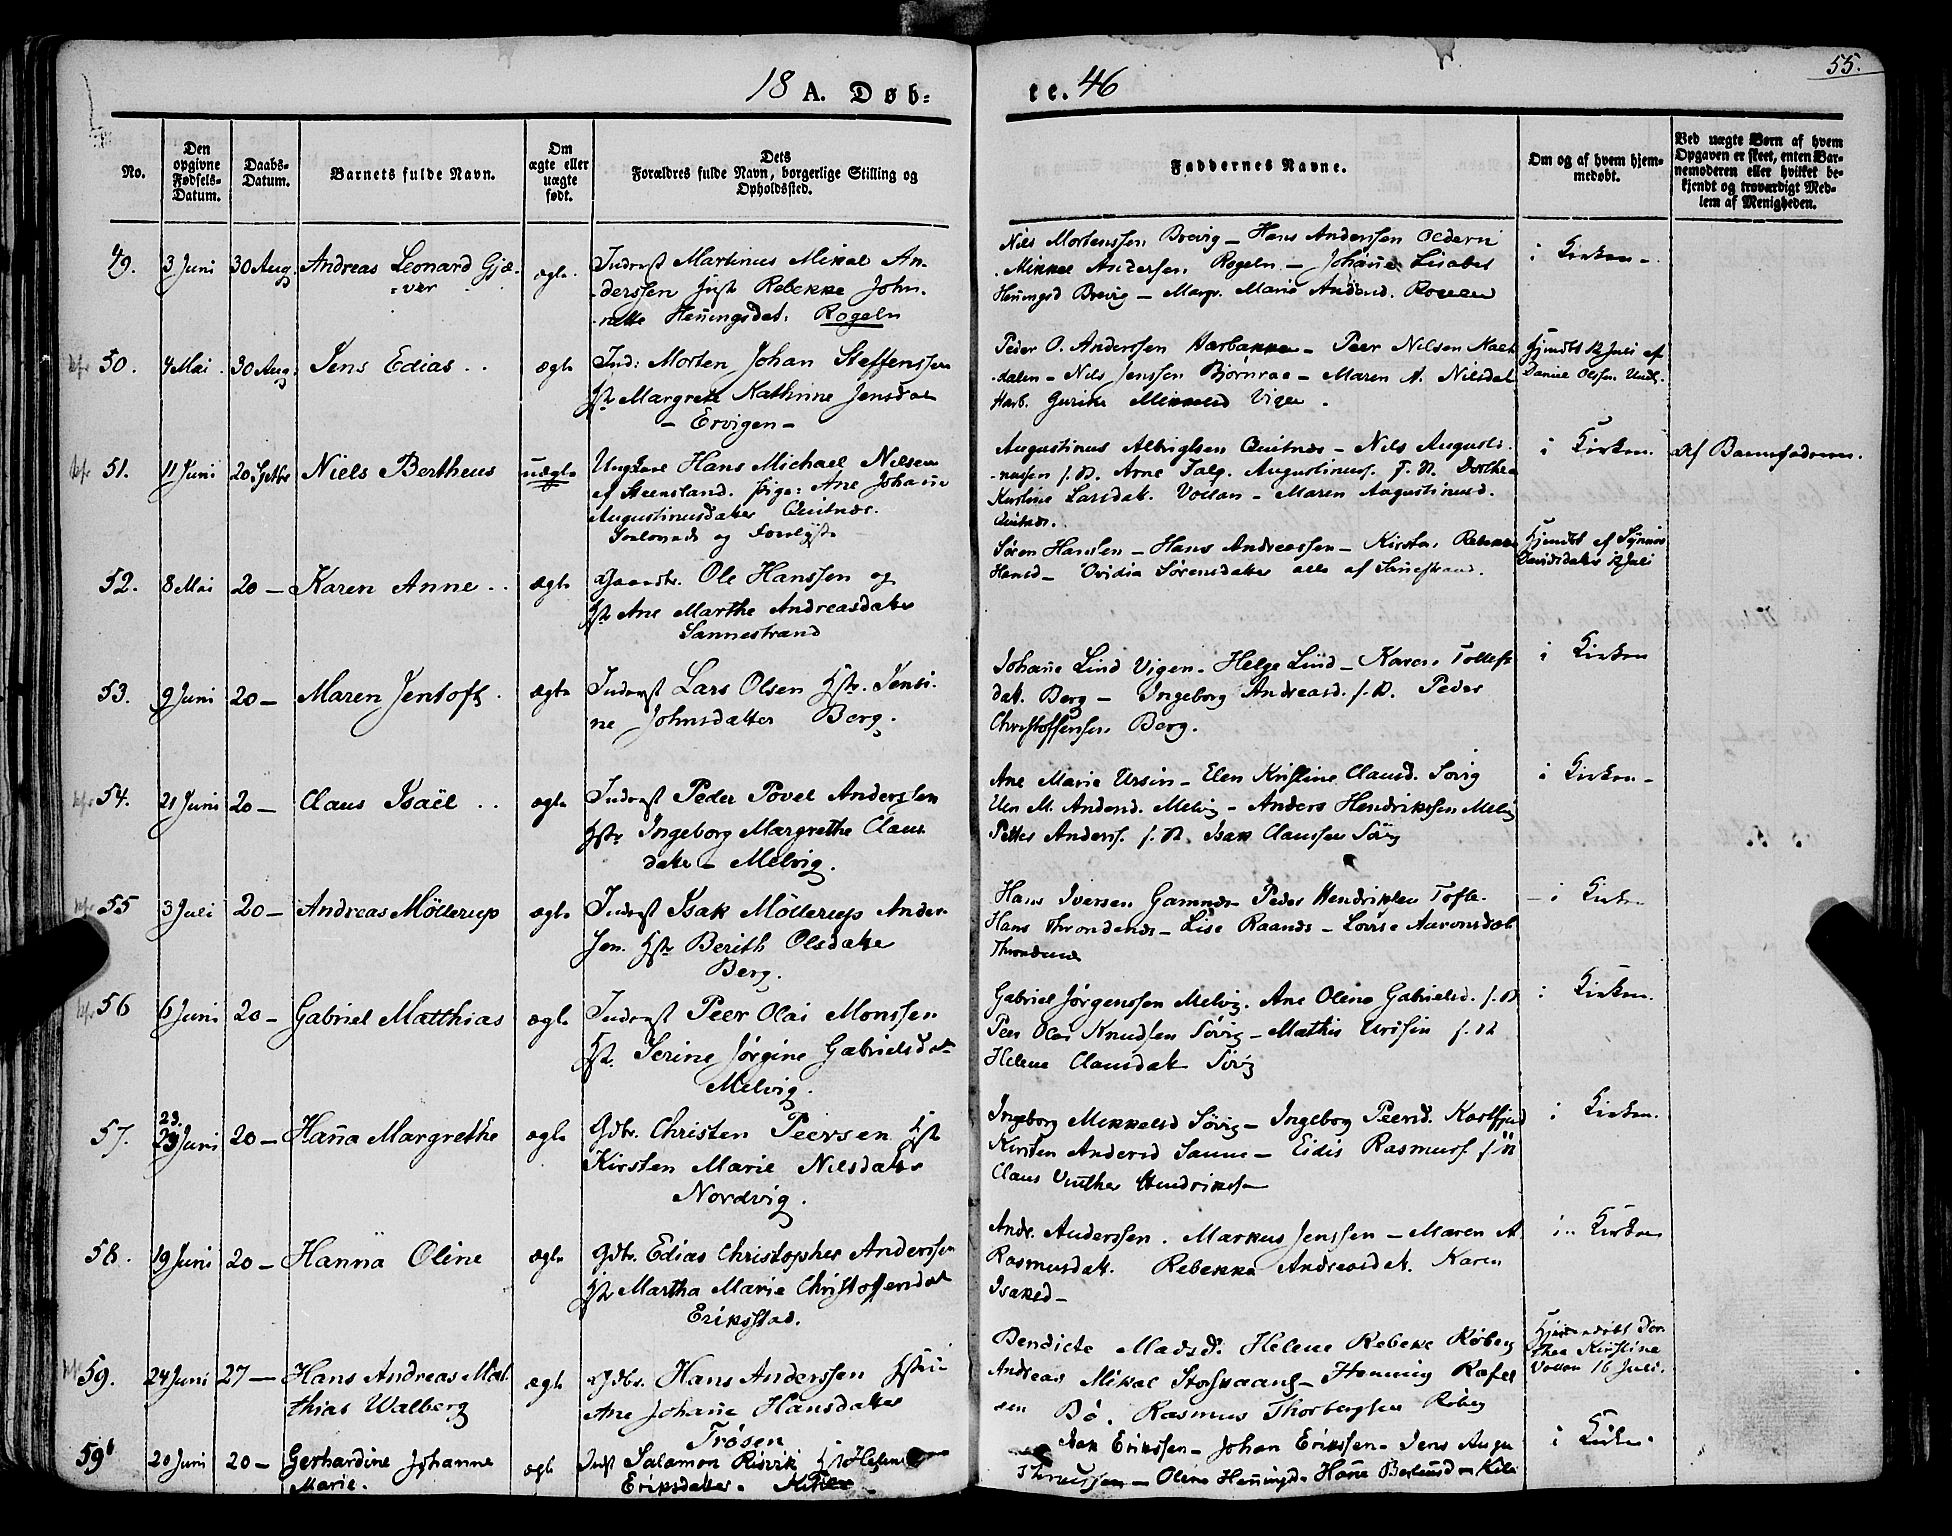 55.
18 A. Døb=
te. 46
No.
Den opgivne Fødsels-Datum.
Daabs-Datum.
Barnets fulde Navn.
Om ægte eller uægte født.
Dets Forældres fulde Navn, borgerlige Stilling og Opholdssted.
Faddernes Navne.
Om og af hvem hjem-medøbt.
Ved uægte Børn af hvem Opgaven er skeet, enten Bar-nemoderen eller hvilket be-kjendt og troværdigt Med-lem af Menigheden.
49. 3 Juni 30 Aug Andreas Leonard Gjæ-
=ver
ægte
Inderst Martinus Mikal An-
-derssen Hust Rebekke John-
-nette Heningsdat: Rogeln
Niels Mortenssen Brevig – Hans Anderssen
Mikkel Andersen Rogeln – Johane Lisabet
Heningsd Brevig – Margr. Marie Andersd.
i Kirken –
50. 4 Mai 30 Aug: Jens Edias . .
ægte
Ind: Morten Johan Steffenssen
Hst Margrete Kathrine Jensdat
– Ervigen –
Peder O. Anderssen Harbakke – Peer Nilsen
-dalen – Nils Jenssen Bjørnraa – Maren A. Nilsdat
Harb. Gurine Mikkelsd Vigen .
Hjemdbt 12 Juli af
Daniel Olssen
51. 11 Juni 20 Septbr Niels Bertheus
uægte
Ungkarl Hans Michael Nilsen
af Steensland. Pige: Ane Johane
Augustinusdatter Quitnæs.
og
Augustinus Albrigtsen Quitnæs – Nils Augusti-
-nussen f. St. Arne Falg. Augustinuss. f. St. Dorthea
Kirstine Larsdat. Vollan – Maren Augustinusd.
Quitnæs.
i Kirken.
af Barnefaderen.
52. 8 Mai 20 – Karen Anne . .
ægte
Gaardbr. Ole Hanssen og
Hst Ane Marthe Andreasdatter
Sannestrand
Søren Hansen – Hans Andreassen – Kirsten, Rebekke
Hansd – Ovidia Sørensdatter alle af Sannestrand.
Hjemdbt af Synnøv
Davidsdatter 12 Juli
53. 9 Juni 20 – Maren Jentoft .
ægte
Inderst Lars Olsen Hstr. Jensi-
ne Johnsdatter Berg.
Johane Lind Vigen – Helge Lind – Karen Tollefs
dat. Berg – Ingeborg Andreasd. f. St. Peder
Christoffersen Berg.
i Kirken
54. 21 Juni 20 – Claus Isaël . .
ægte
Inderst Peder Povel Anderssen
Hstr Ingeborg Margrethe Claus
datter – Melvig.
Ane Marie Ursin – Elen Kristine Clausd. Sørvig
Elen M. Andersd. Melvig – Anders Hendrikssen Melvig
Petter Anderss. f. St. Isak Claussen Sørvig
i Kirken –
55 3 Juli 20 – Andreas Möllerup
ægte
Inderst Isak Möllerup Ander-
sen. Hstr Berith Olsdatter
Berg.
Hans Iversen Gamnæs Peder Hendriksen Tofte.
Hans Throndenæs – Lise Raanes – Lovise Aaronsdat
Throndenæs
– i Kirken
56 6 Juni 20 – Gabriel Matthias
ægte
Inderst Peer Olai Monssen
Hst. Serine Jørgine Gabrielsdat
Melvig.
Gabriel Jørgenssen Melvig. Ane Oline Gabrielsd. f. St
Peer Olai Knudsen Sørvig – Mathis Urssin f. St
Helene Clausdat Sørvig
i Kirken.
57. 23. Juni 20 – Hana Margrethe
ægte
Gdbr. Christen Peersen Hst
Kirsten Marie Nilsdatter
Nordvig.
Ingeborg Mikkelsd Sørvig – Ingeborg Peersd.
Kirsten Andersd Sanne – Eidis Rasmuss. f. St
Claus Vinther Hendrikss –
i Kirken.
58. 19 Juni 20 – Hanna Oline
ægte
Gdbr. Edias Christopher Anderssen
Hstr Martha Marie Christoffersdat
Eriksstad.
Andr. Anderssen. Markus Jenssen – Maren A
Rasmusdat. Rebekka Andreasdat. Karen
Isaksd –
i Kirken
59. 24 Juni 27 – Hans Andreas Mat-
thias Walberg
ægte
Gdbr. Hans Anderssen Hstr
Ane Johane Hansdatter
Trøsen
Bendicte Madsd. Helene Rebekke Røberg
Andreas Mikal – Henning Rafel
sen Bø. Rasmus Thorbergsen Røberg
Hjemdøbt Dor-
thea Kirstine
Vollan 16 Juli.
59b 20 Juni 20 – Gerhardine Johanne
Marie.
ægte
Indst Salamon Risvik Hst Helene
Eriksdatter.
Isak Erikssen – Johan Erikssen – Jens Augu
– Oline Henningsd – Hane
i Kirken